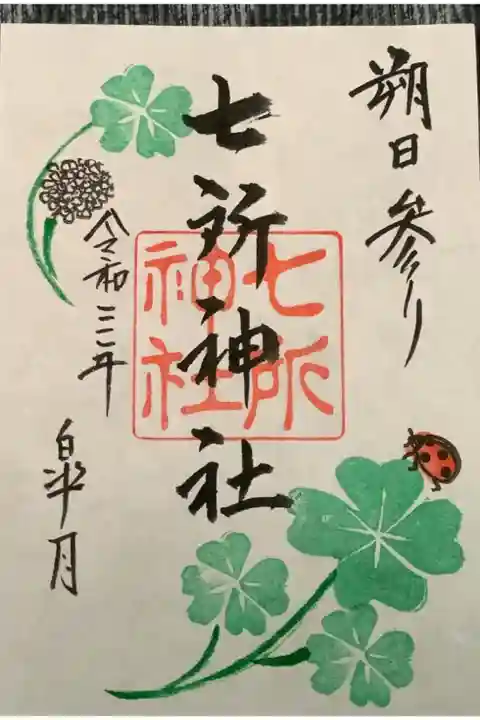 朔日参り
七所神社
七所
神社
令和三年
皐月